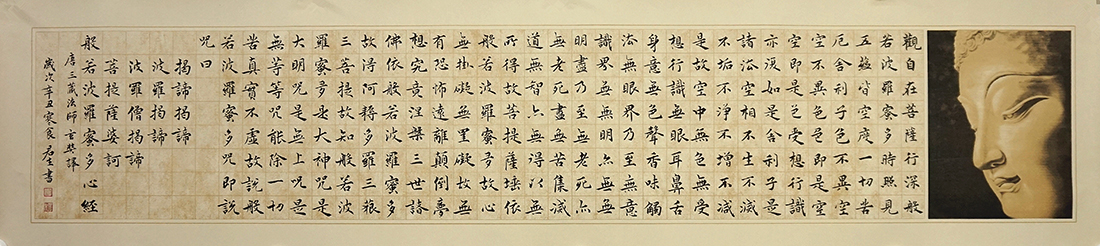 觀自在菩薩行深般
若波羅蜜多時照見
五蘊皆空度一切苦
厄舍利子色不異空
空不異色色即是空
空即是色受想行識
亦復如是舍利子是
諸法空相不生不滅
不垢不淨不增不減
是故空中無色無受
想行識無眼耳鼻舌
身意無色聲香味觸
法無眼界乃至無意
識界無無明亦無無
明盡乃至無老死亦
無老死盡無苦集滅
道無智亦無得以無
所得故菩提薩埵依
般若波羅蜜多故心
無掛礙無罣礙故無
有恐怖遠離顛倒夢
想究竟涅槃三世諸
佛依般若波羅蜜多
故得阿耨多羅三藐
三菩提故知般若波
羅蜜多是大神咒是
大明咒是無上咒是
無等等咒能除一切
苦真實不虛故說般
若波羅蜜多咒即說
咒曰
揭諦揭諦
波羅揭諦
波羅僧揭諦
菩提薩婆訶
般若波羅蜜多心經
唐三藏法師玄奘譯
歲次辛丑寒食君書